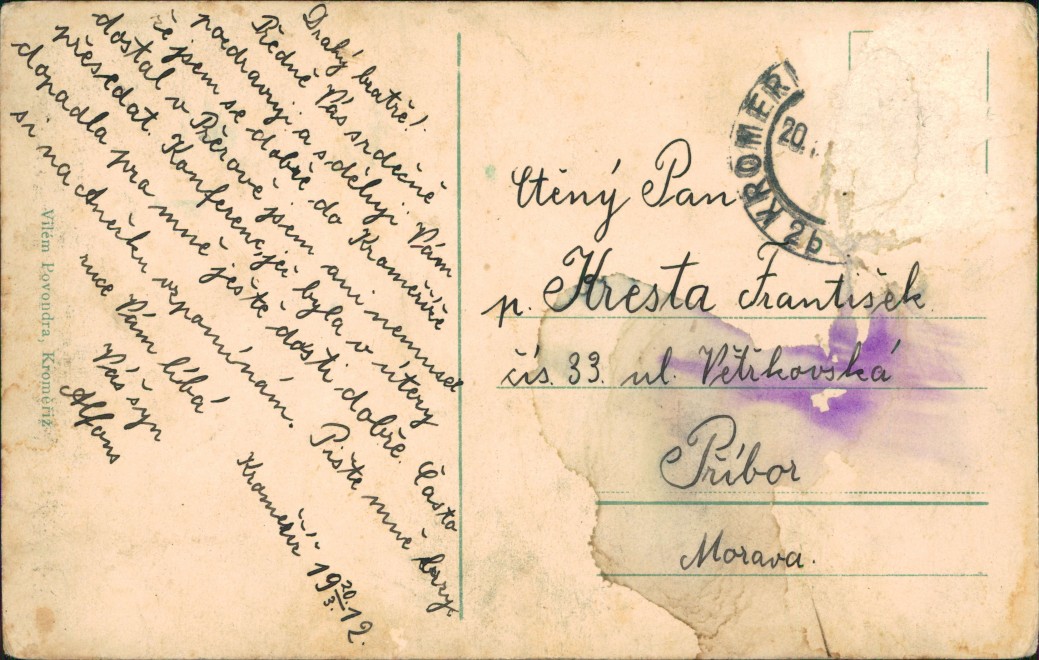 Drahý bratře!
Předně Vás srdečně
pozdravuji a sděluji Vám
že jsem se dobře do Kroměříže
dostal v Přerově jsem ani nemusel
přesedat. Konferenc, jež byla v útery
dopadla pro mně ještě dosti dobře. Často
si na dněrku vzpomínám. Pište mně brzy.
ruce Vám líbá
Váš syn
Alfons
Kroměříž 19 20./3. 12.
Vilém Povondra, Kroměříž.
KROMĚŘ
20.
2b
Ctěný Pan
p. Kresta František
čís. 33. ul. Větřkovská
Příbor
Morava.